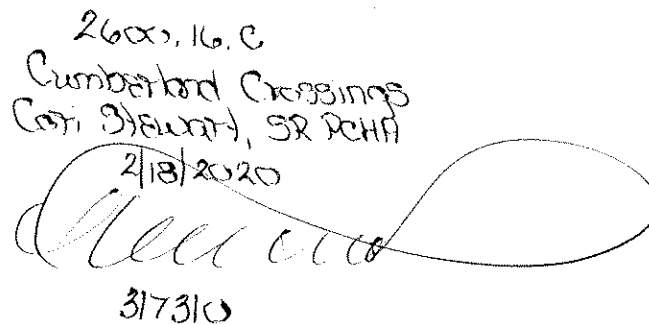 2600.16.C
Cumberland Crossings
Cori Stewart, SR PCHA
2/18/2020
317310